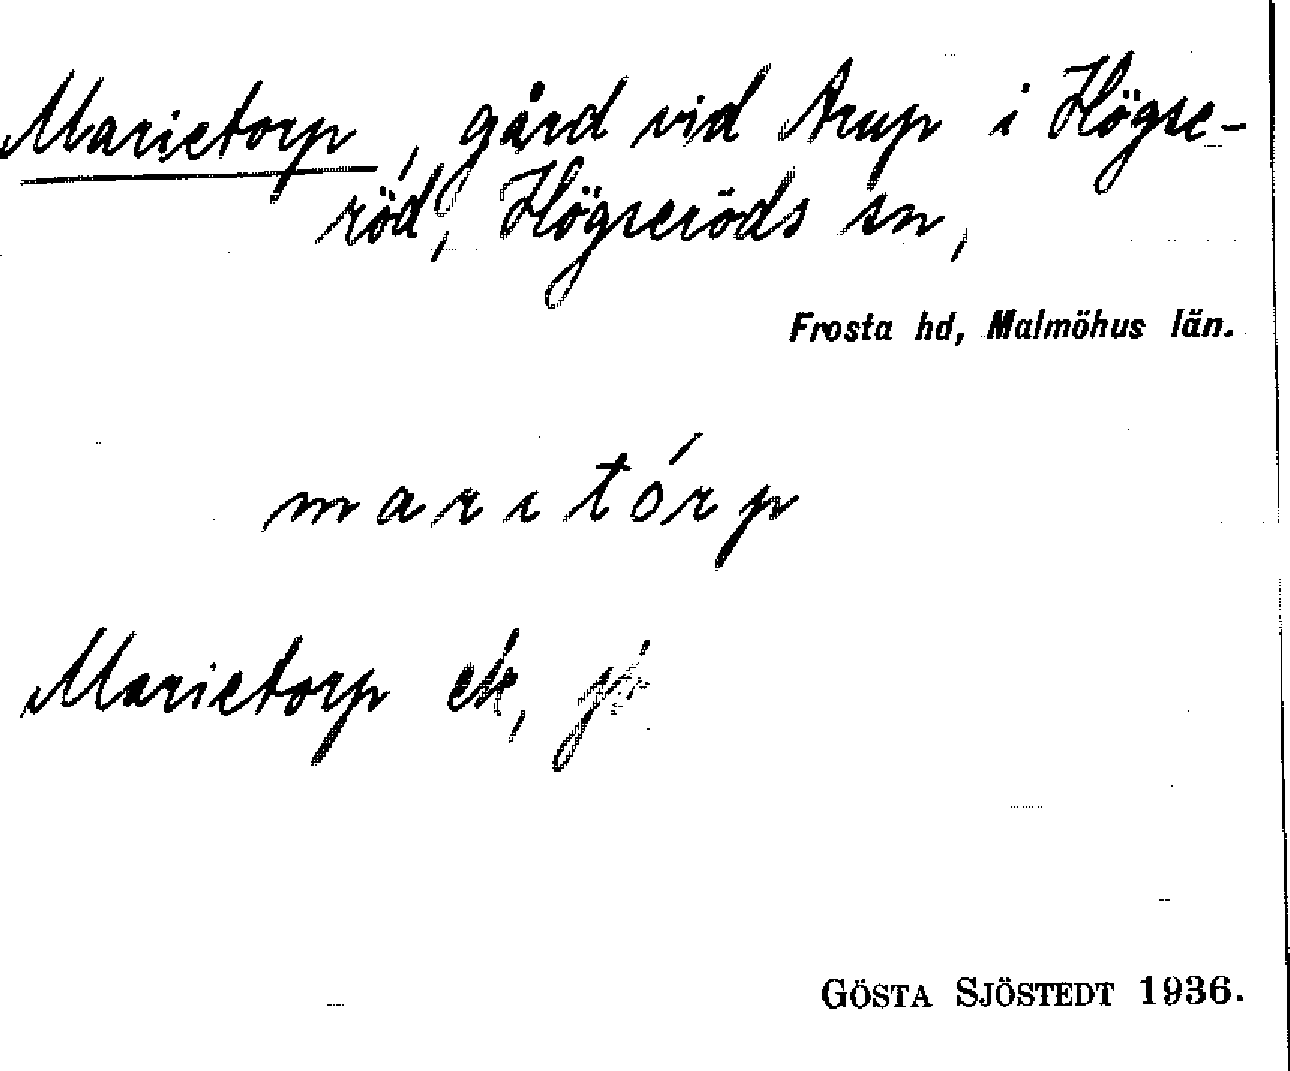 Marietorp, gård vid Arup i Högse-
röd, Högseröds sn,
Frosta hd, Malmöhus län.
maritórp
Marietorp ek,
GÖSTA SJÖSTEDT 1936.